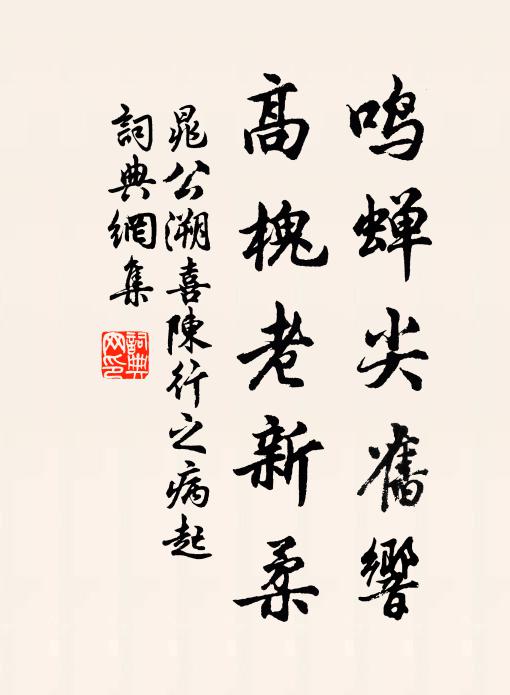 鸣蝉尖旧響
高槐老新柔
晁公溯喜陳行之病起
詞典網集
詞典
网印